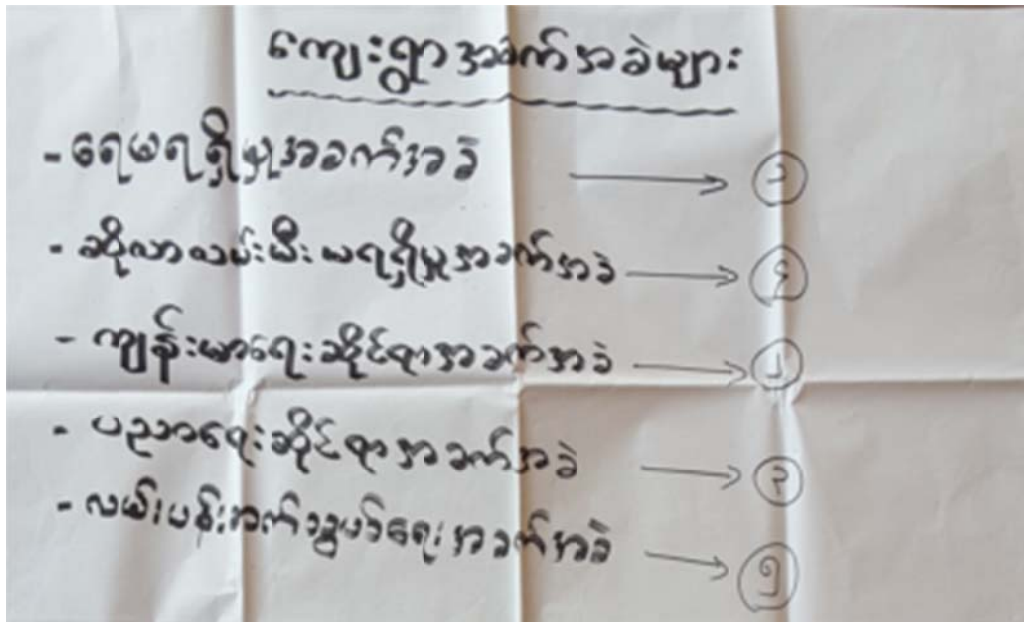 ကျေးရွာအခက်အခဲများ
- ရေမရရှိမှုအခက်အခဲ → ၁
- ဆိုလာလမ်းမီးမရရှိမှုအခက်အခဲ → ၄
- ကျန်းမာရေးဆိုင်ရာအခက်အခဲ → ၂
- ပညာရေးဆိုင်ရာအခက်အခဲ → ၃
- လမ်းပန်းဆက်သွယ်ရေးအခက်အခဲ → ၅